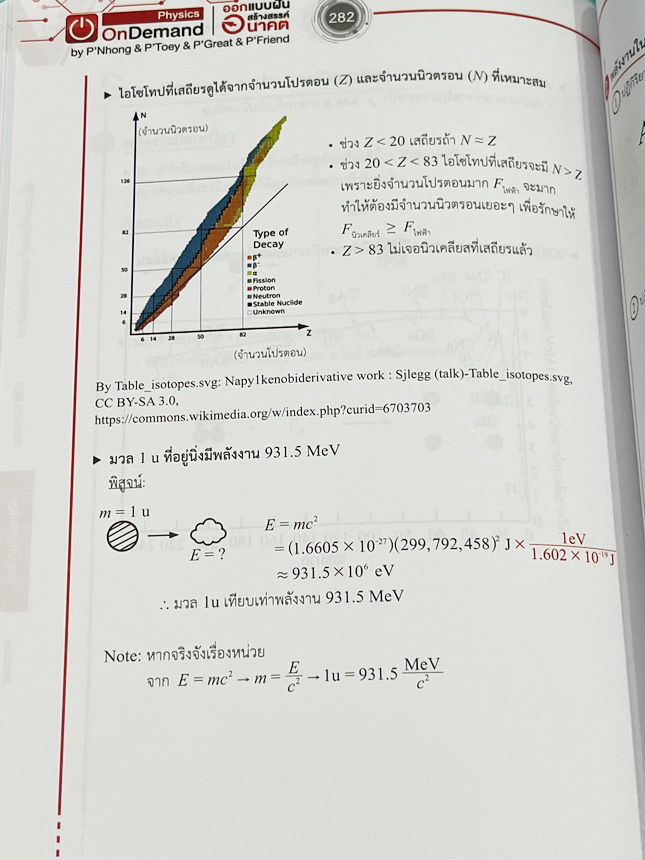 Physics
OnDemand
ออกแบบฝัน
สร้างสรรค์
อนาคต
282
by P'Nhong & P'Toey & P'Great & P'Friend
▶ ไอโซโทปที่เสถียรดูได้จากจำนวนโปรตอน (Z) และจำนวนนิวตรอน (N) ที่เหมาะสม
N
(จำนวนนิวตรอน)
126
82
50
28
14
6
6 14 28 50 82 Z
(จำนวนโปรตอน)
Type of
Decay
β⁺
β⁻
α
Fission
Proton
Neutron
Stable Nuclide
Unknown
• ช่วง Z < 20 เสถียรถ้า N ≈ Z
• ช่วง 20 < Z < 83 ไอโซโทปที่เสถียรจะมี N > Z
เพราะยิ่งจำนวนโปรตอนมาก F ไฟฟ้า จะมาก
ทำให้ต้องมีจำนวนนิวตรอนเยอะๆ เพื่อรักษาให้
F นิวเคลียร์ ≥ F ไฟฟ้า
• Z > 83 ไม่เจอนิวเคลียสที่เสถียรแล้ว
By Table_isotopes.svg: Napy1kenobiderivative work : Sjlegg (talk)-Table_isotopes.svg,
CC BY-SA 3.0,
https://commons.wikimedia.org/w/index.php?curid=6703703
▶ มวล 1 u ที่อยู่นิ่งมีพลังงาน 931.5 MeV
พิสูจน์:
m = 1 u
E = ?
E = mc²
= (1.6605 × 10⁻²⁷)(299,792,458)² J × 1eV / 1.602 × 10⁻¹⁹ J
≈ 931.5 × 10⁶ eV
∴ มวล 1u เทียบเท่าพลังงาน 931.5 MeV
Note: หากจริงจังเรื่องหน่วย
จาก E = mc² → m = E / c² → 1u = 931.5 MeV / c²